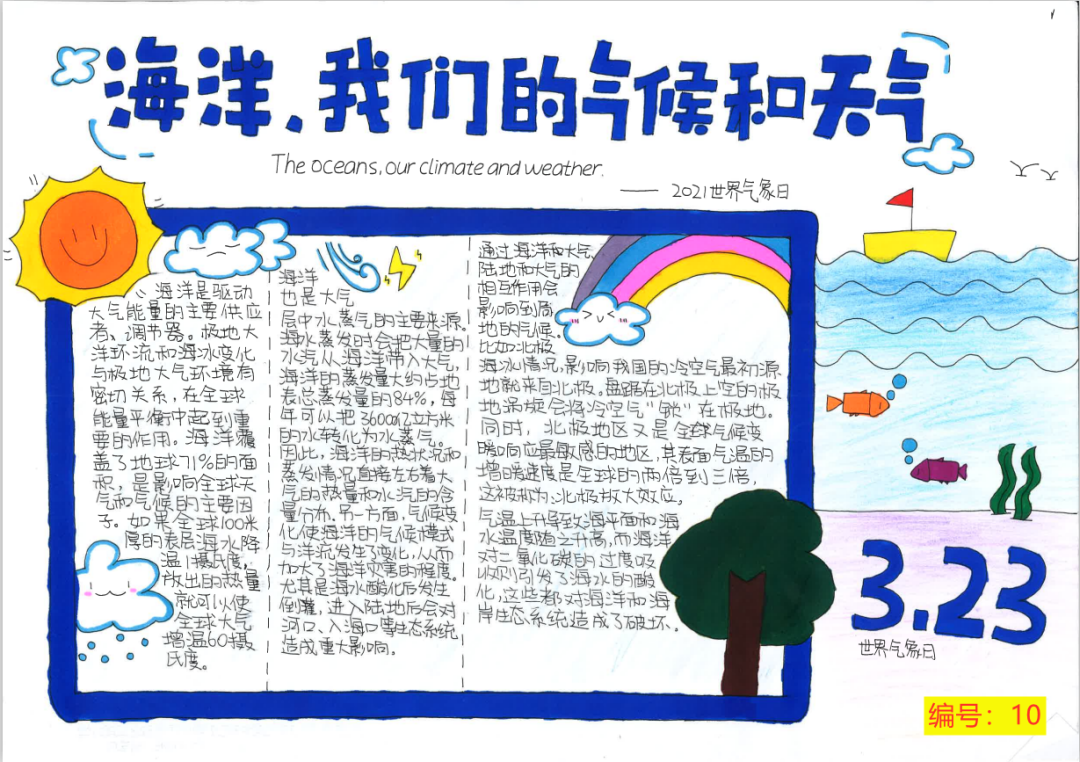 海洋、我们的气候和天气
The oceans, our climate and weather.
—— 2021世界气象日
海洋是驱动
大气能量的主要供应
者、调节器。极地大
洋环流和海冰变化
与极地大气环境有
密切关系，在全球
能量平衡中起到重
要的作用。海洋覆
盖了地球71%的面
积，是影响全球天
气和气候的主要因
子。如果全球100米
厚的表层海水降
温1摄氏度，
放出的热量
就可以使
全球大气
增温60摄
氏度。
海洋
也是大气
层中水蒸气的主要来源。
海水蒸发时会把大量的
水汽从海洋带入大气，
海洋的蒸发量大约占地
表总蒸发量的84%，每
年可以把36000亿立方米
的水转化为水蒸气。
因此，海洋的热状况和
蒸发情况直接左右着大
气的热量和水汽的含
量分布。另一方面，气候变
化使海洋的气候模式
与洋流发生了变化，从而
加大了海洋灾害的程度。
尤其是海水酸化后发生
倒灌，进入陆地后会对
河口、入海口等生态系统
造成重大影响。
通过海洋和大气、
陆地和大气的
相互作用会
影响到局
地的气候。
比如北极
海冰情况，影响我国的冷空气最初源
地就来自北极。盘踞在北极上空的极
地涡旋会将冷空气“锁”在极地。
同时，北极地区又是全球气候变
暖响应最敏感的地区，其表面气温的
增暖速度是全球的两倍到三倍，
这被称为北极放大效应。
气温上升导致海平面和海
水温度随之升高，而海洋
对二氧化碳的过度吸
收则引发了海水的酸
化，这些都对海洋和海
岸生态系统造成了破坏。
3.23
世界气象日
编号：10